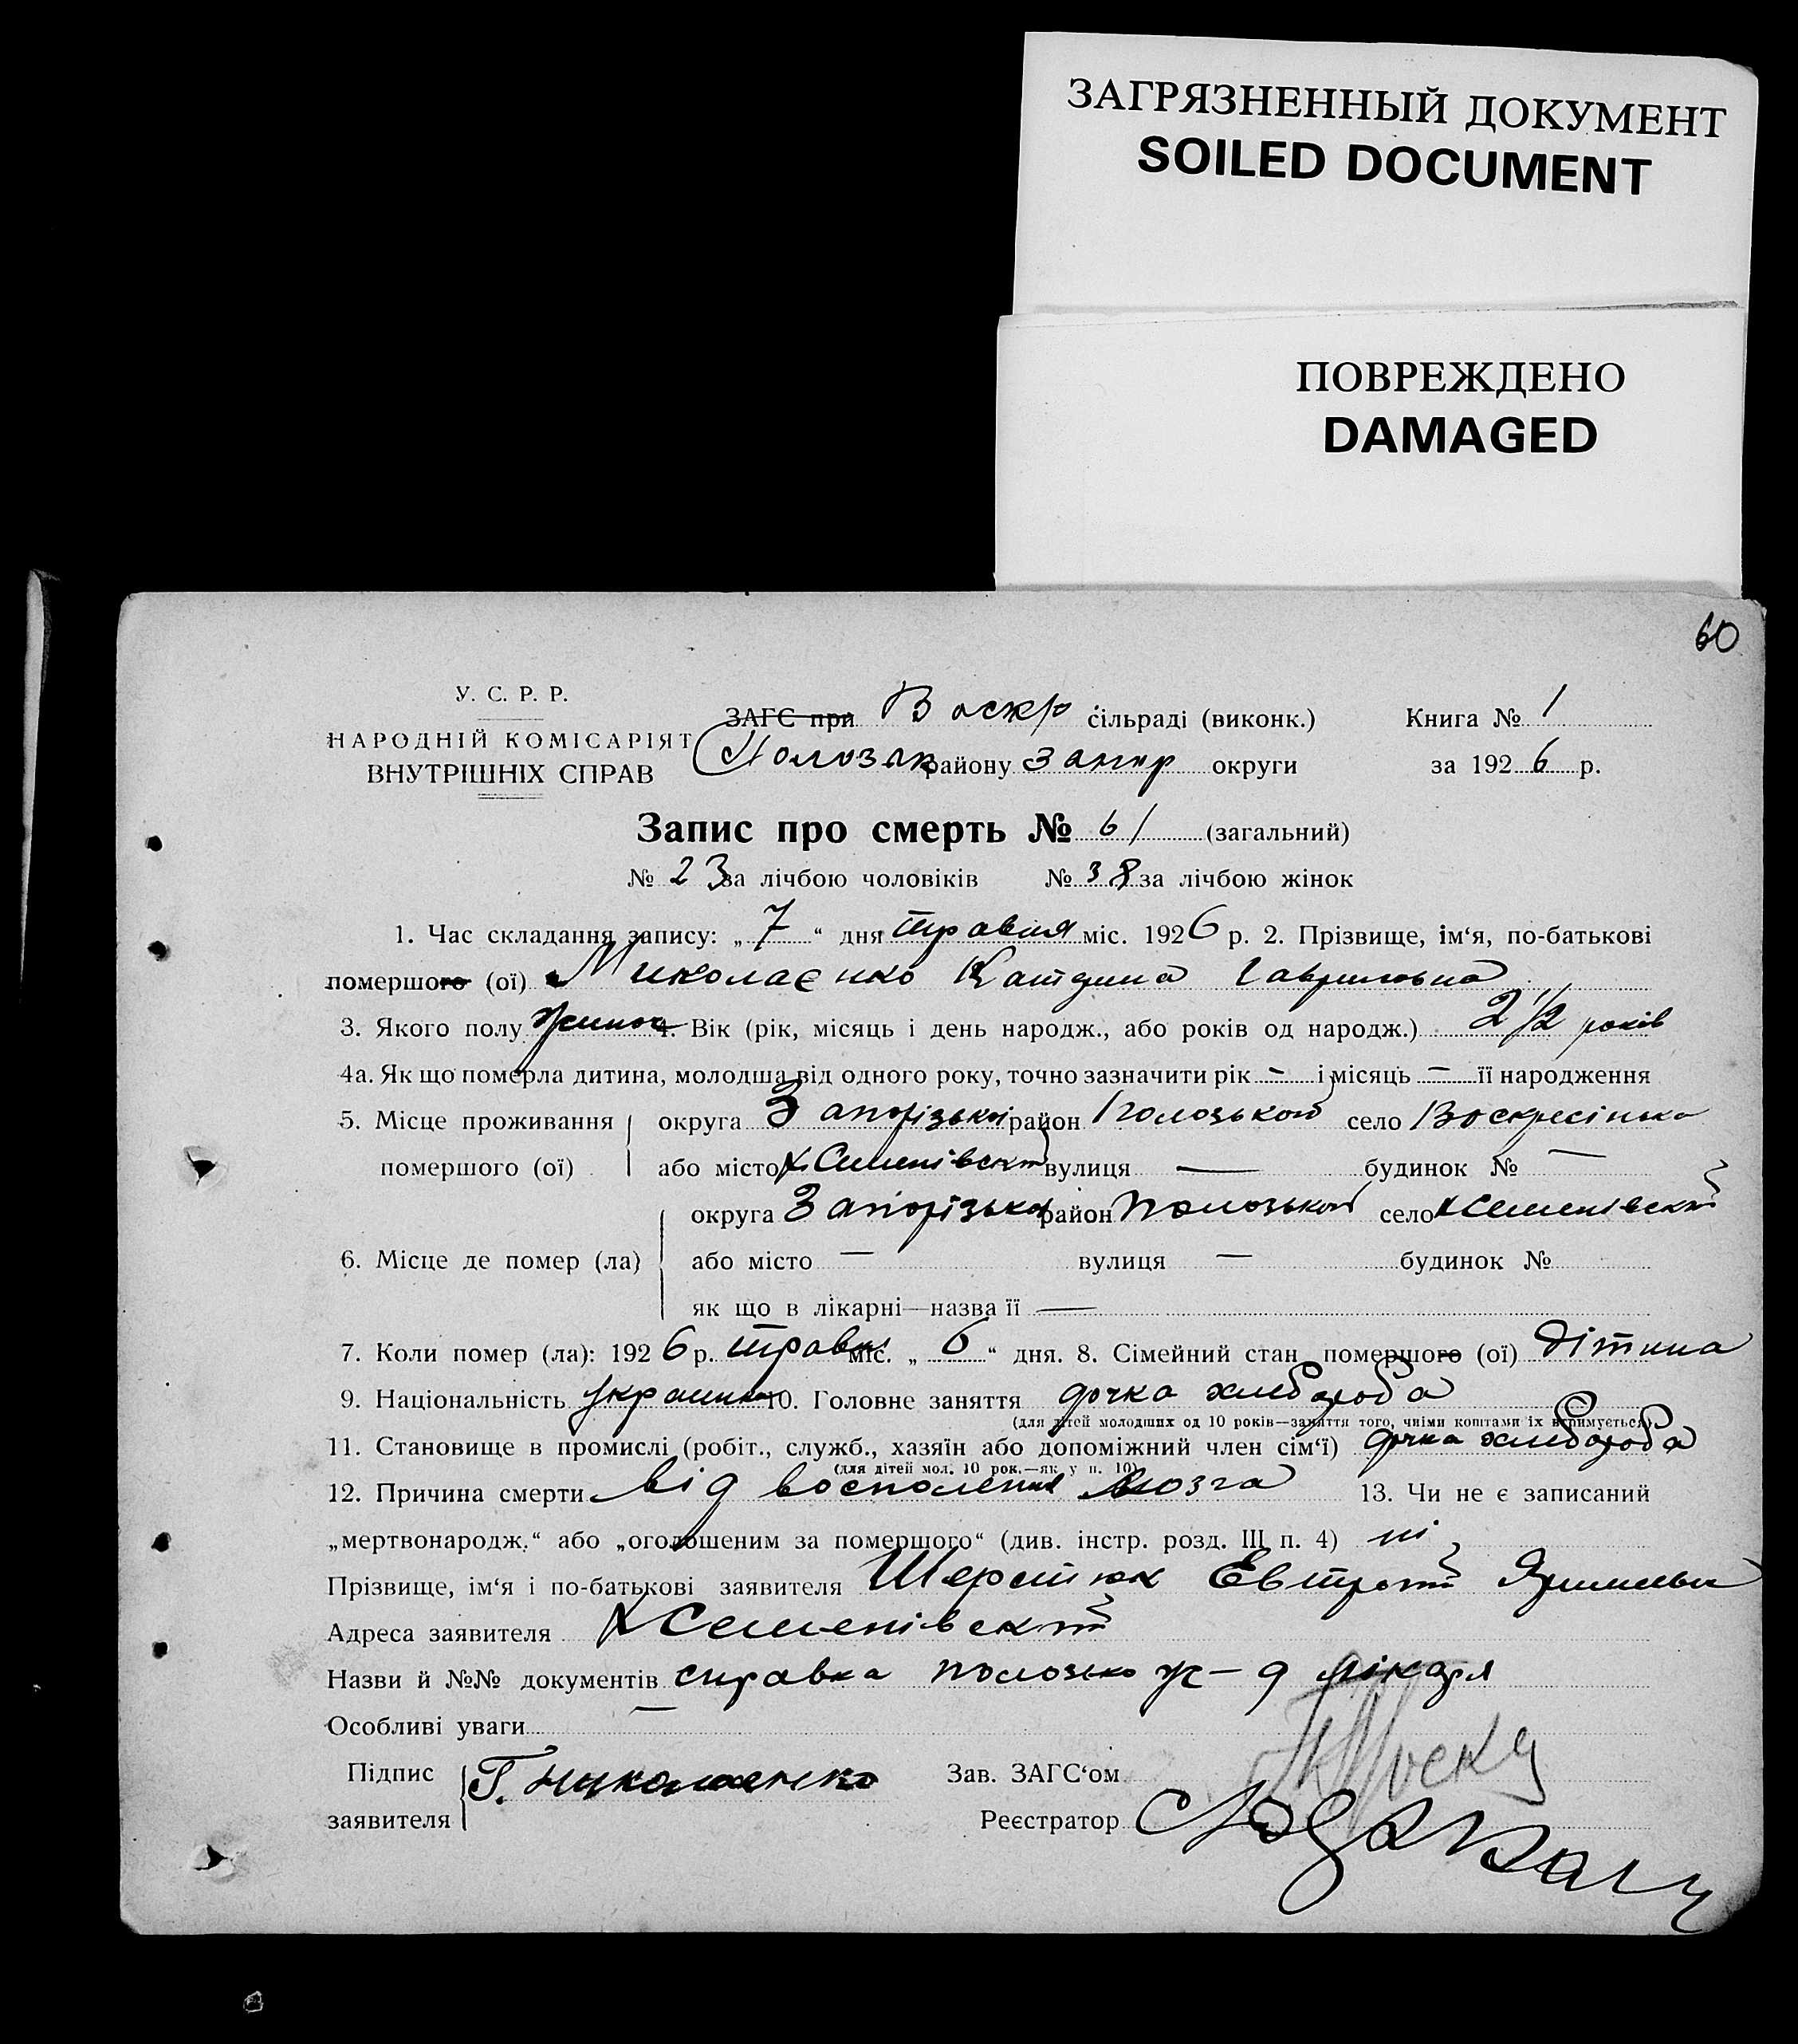 ЗАГРЯЗНЕННЫЙ ДОКУМЕНТ
SOILED DOCUMENT
ПОВРЕЖДЕНО
DAMAGED
60
У. С. Р. Р.
НАРОДНІЙ КОМІСАРІЯТ
ВНУТРІШНІХ СПРАВ
ЗАГС при Воскр сільраді (виконк.) Книга № 1
Полозьк району Запор округи за 1926 р.
Запис про смерть № 61 (загальний)
№ 23 за лічбою чоловіків № 38 за лічбою жінок
1. Час складання запису: „7“ дня травня міс. 1926 р. 2. Прізвище, ім‘я, по-батькові
помершого (ої) Миколаєнко Катерина Гавриловна
3. Якого полу жиноч 4. Вік (рік, місяць і день народж., або років од народж.) 2 1/2 років
4а. Як що померла дитина, молодша від одного року, точно зазначити рік – і місяць – її народження
5. Місце проживання округа Запорізької район Полозького село Воскресінька
помершого (ої) або місто х Семенівский вулиця — будинок № —
округа Запорізької район Полозького село х Семенівский
6. Місце де помер (ла) або місто — вулиця — будинок №
як що в лікарні—назва її —
7. Коли помер (ла): 1926 р. травн міс. „6“ дня. 8. Сімейний стан помершого (ої) дітина
9. Національність украинка 10. Головне заняття дочка хлібороба
(для дітей молодших од 10 років—заняття того, чиїми коштами їх втримується)
11. Становище в промислі (робіт., служб., хазяїн або допоміжний член сім‘ї) дочка хлібороба
(для дітей мол. 10 рок.—як у п. 10)
12. Причина смерти від восполения мозга 13. Чи не є записаний
„мертвонародж.“ або „оголошеним за помершого“ (див. інстр. розд. III п. 4) ні
Прізвище, ім‘я і по-батькові заявителя Шерстюк Евтрот
Адреса заявителя х Семенівский
Назви й №№ документів справка полозько лікаря
Особливі уваги —
Підпис заявителя Г. Николаенко Зав. ЗАГС‘ом
Реєстратор